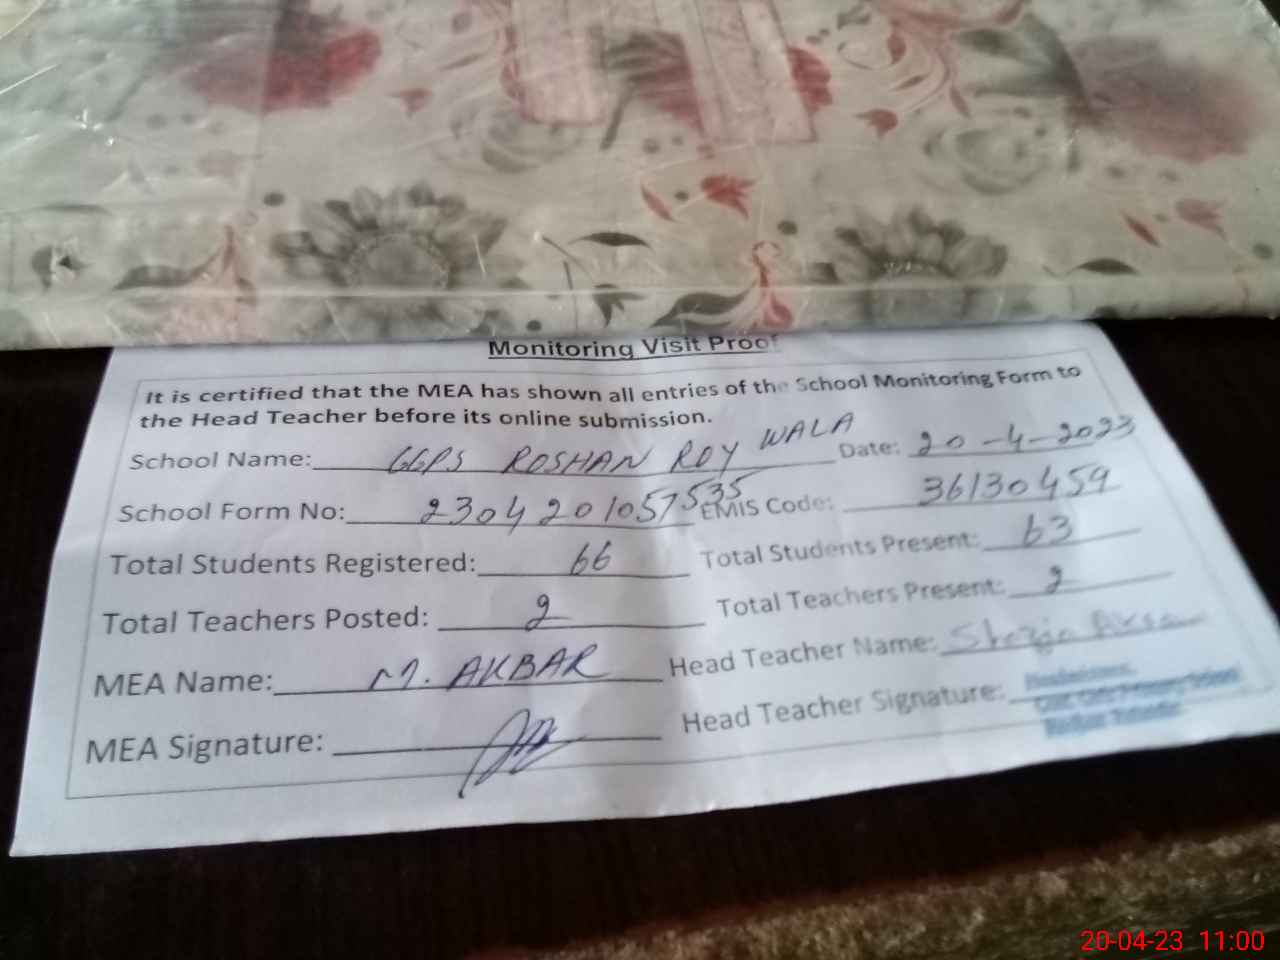 Monitoring Visit Proof
It is certified that the MEA has shown all entries of the School Monitoring Form to
the Head Teacher before its online submission.
School Name: GGPS ROSHAN ROY WALA Date: 20-4-2023
School Form No: 2304201057535 EMIS Code: 36130459
Total Students Registered: 66 Total Students Present: 63
Total Teachers Posted: 2 Total Teachers Present: 2
MEA Name: M. AKBAR Head Teacher Name:
MEA Signature: Head Teacher Signature:
20-04-23 11:00